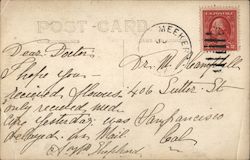 POST CARD
MEEKER
Dear Doctor;
I hope you
received flowers.
only received med.
Card yesterday was
delayed in Mail
Shepherd
Dr. W. P. Campbell
406 Sutter St
San francisco
Cal